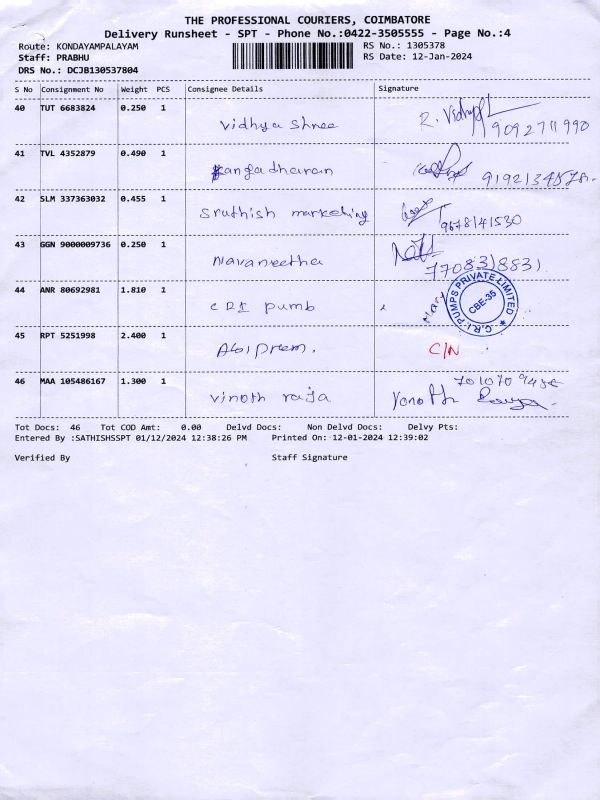 THE PROFESSIONAL COURIERS, COIMBATORE
Delivery Runsheet - SPT - Phone No.:0422-3505555 - Page No.:4
Route: KONDAYAMPALAYAM RS No.: 1305378
Staff: PRABHU RS Date: 12-Jan-2024
DRS No.: DCJB130537804
S No Consignment No Weight PCS Consignee Details Signature
40 TUT 6683824 0.250 1 Vidhya Shree R. Vidhya 9092711990
41 TVL 4352879 0.490 1 gangadharan
42 SLM 337363032 0.455 1 Sruthish marketing 9678141530
43 GGN 9000009736 0.250 1 Navaneetha 7708318831
44 ANR 80692981 1.810 1 CRI pumb
C.R.I. PUMPS PRIVATE LIMITED CBE-35
45 RPT 5251998 2.400 1 C/N
46 MAA 105486167 1.300 1 vinoth raja
Tot Docs: 46 Tot COD Amt: 0.00 Delvd Docs: Non Delvd Docs: Delvy Pts:
Entered By :SATHISHSSPT 01/12/2024 12:38:26 PM Printed On: 12-01-2024 12:39:02
Verified By Staff Signature